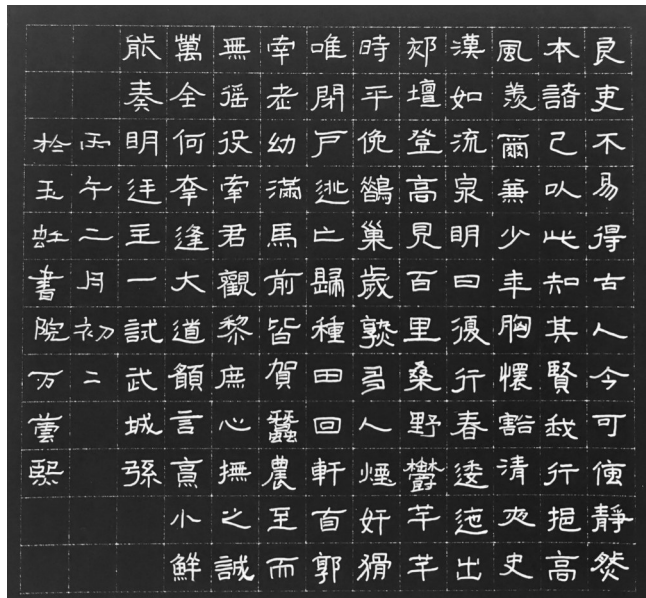 良吏不易得古人今可傳靜然
本諸己以此知其賢我行挹高
風羨爾兼少年胸懷豁清夜史
漢如流泉明日復行春逶迤出
郊壇登高見百里桑野鬱芊芊
時平俛鵲巢歲熟多人煙奸猾
唯閉戶逃亡歸種田回軒自郭
南老幼滿馬前皆賀蠶農至而
無徭役牽君觀黎庶心撫之誠
萬全何幸逢大道願言烹小鮮
能奏明廷主一試武城弦
丙午二月初二
於玉虹書院万蕓熙